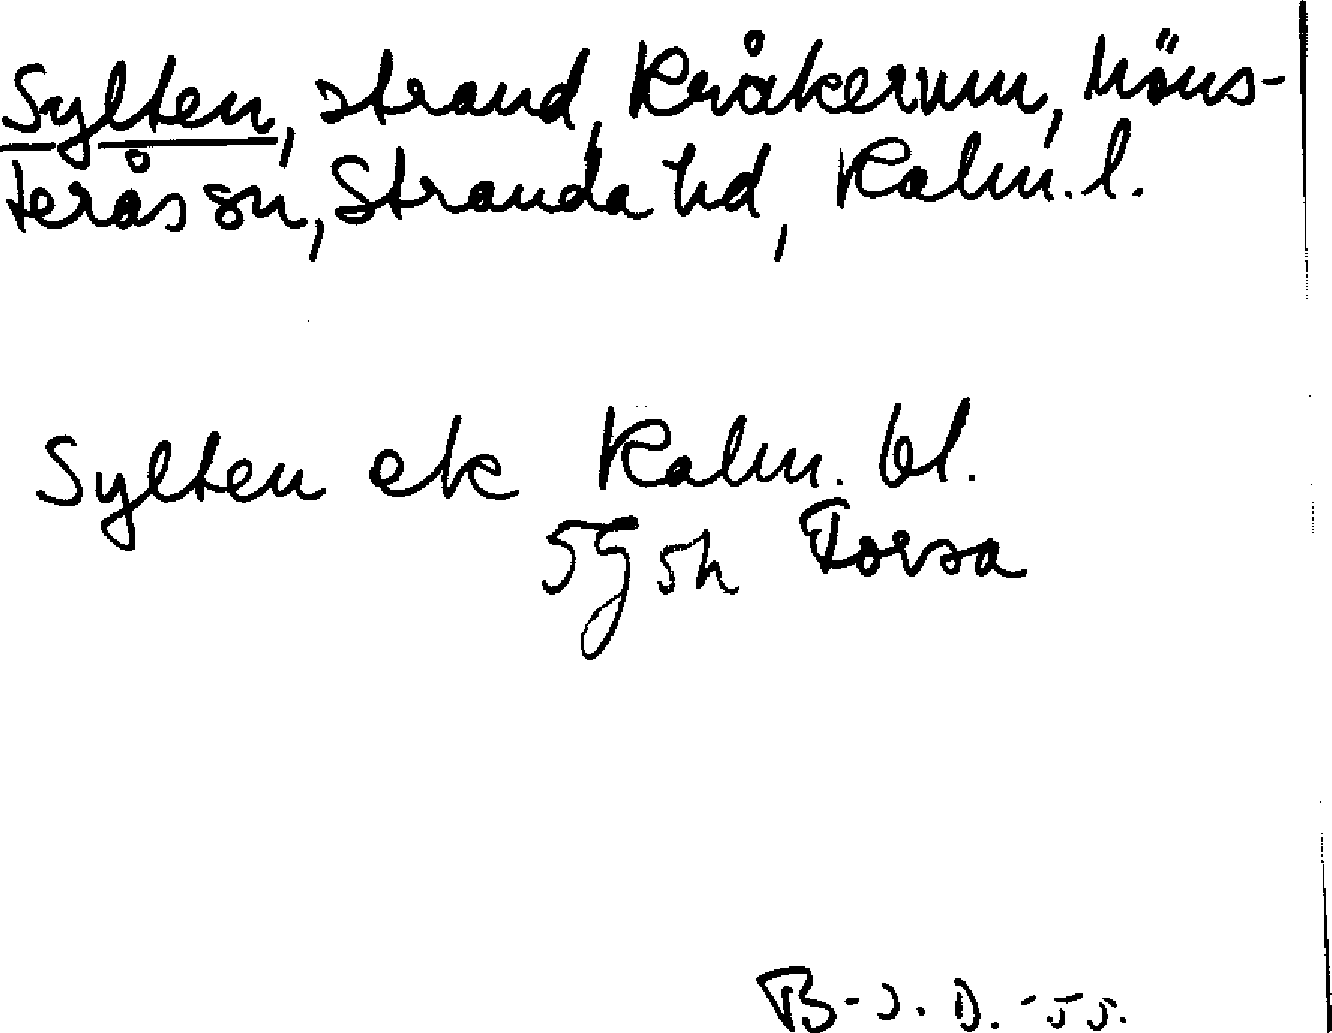 Sylten, strand, Kråkerum, Möns-
terås sn, Stranda hd, Kalm. l.
Sylten ek Kalm. bl.
5g5h Forsa
B-J. D. -55.